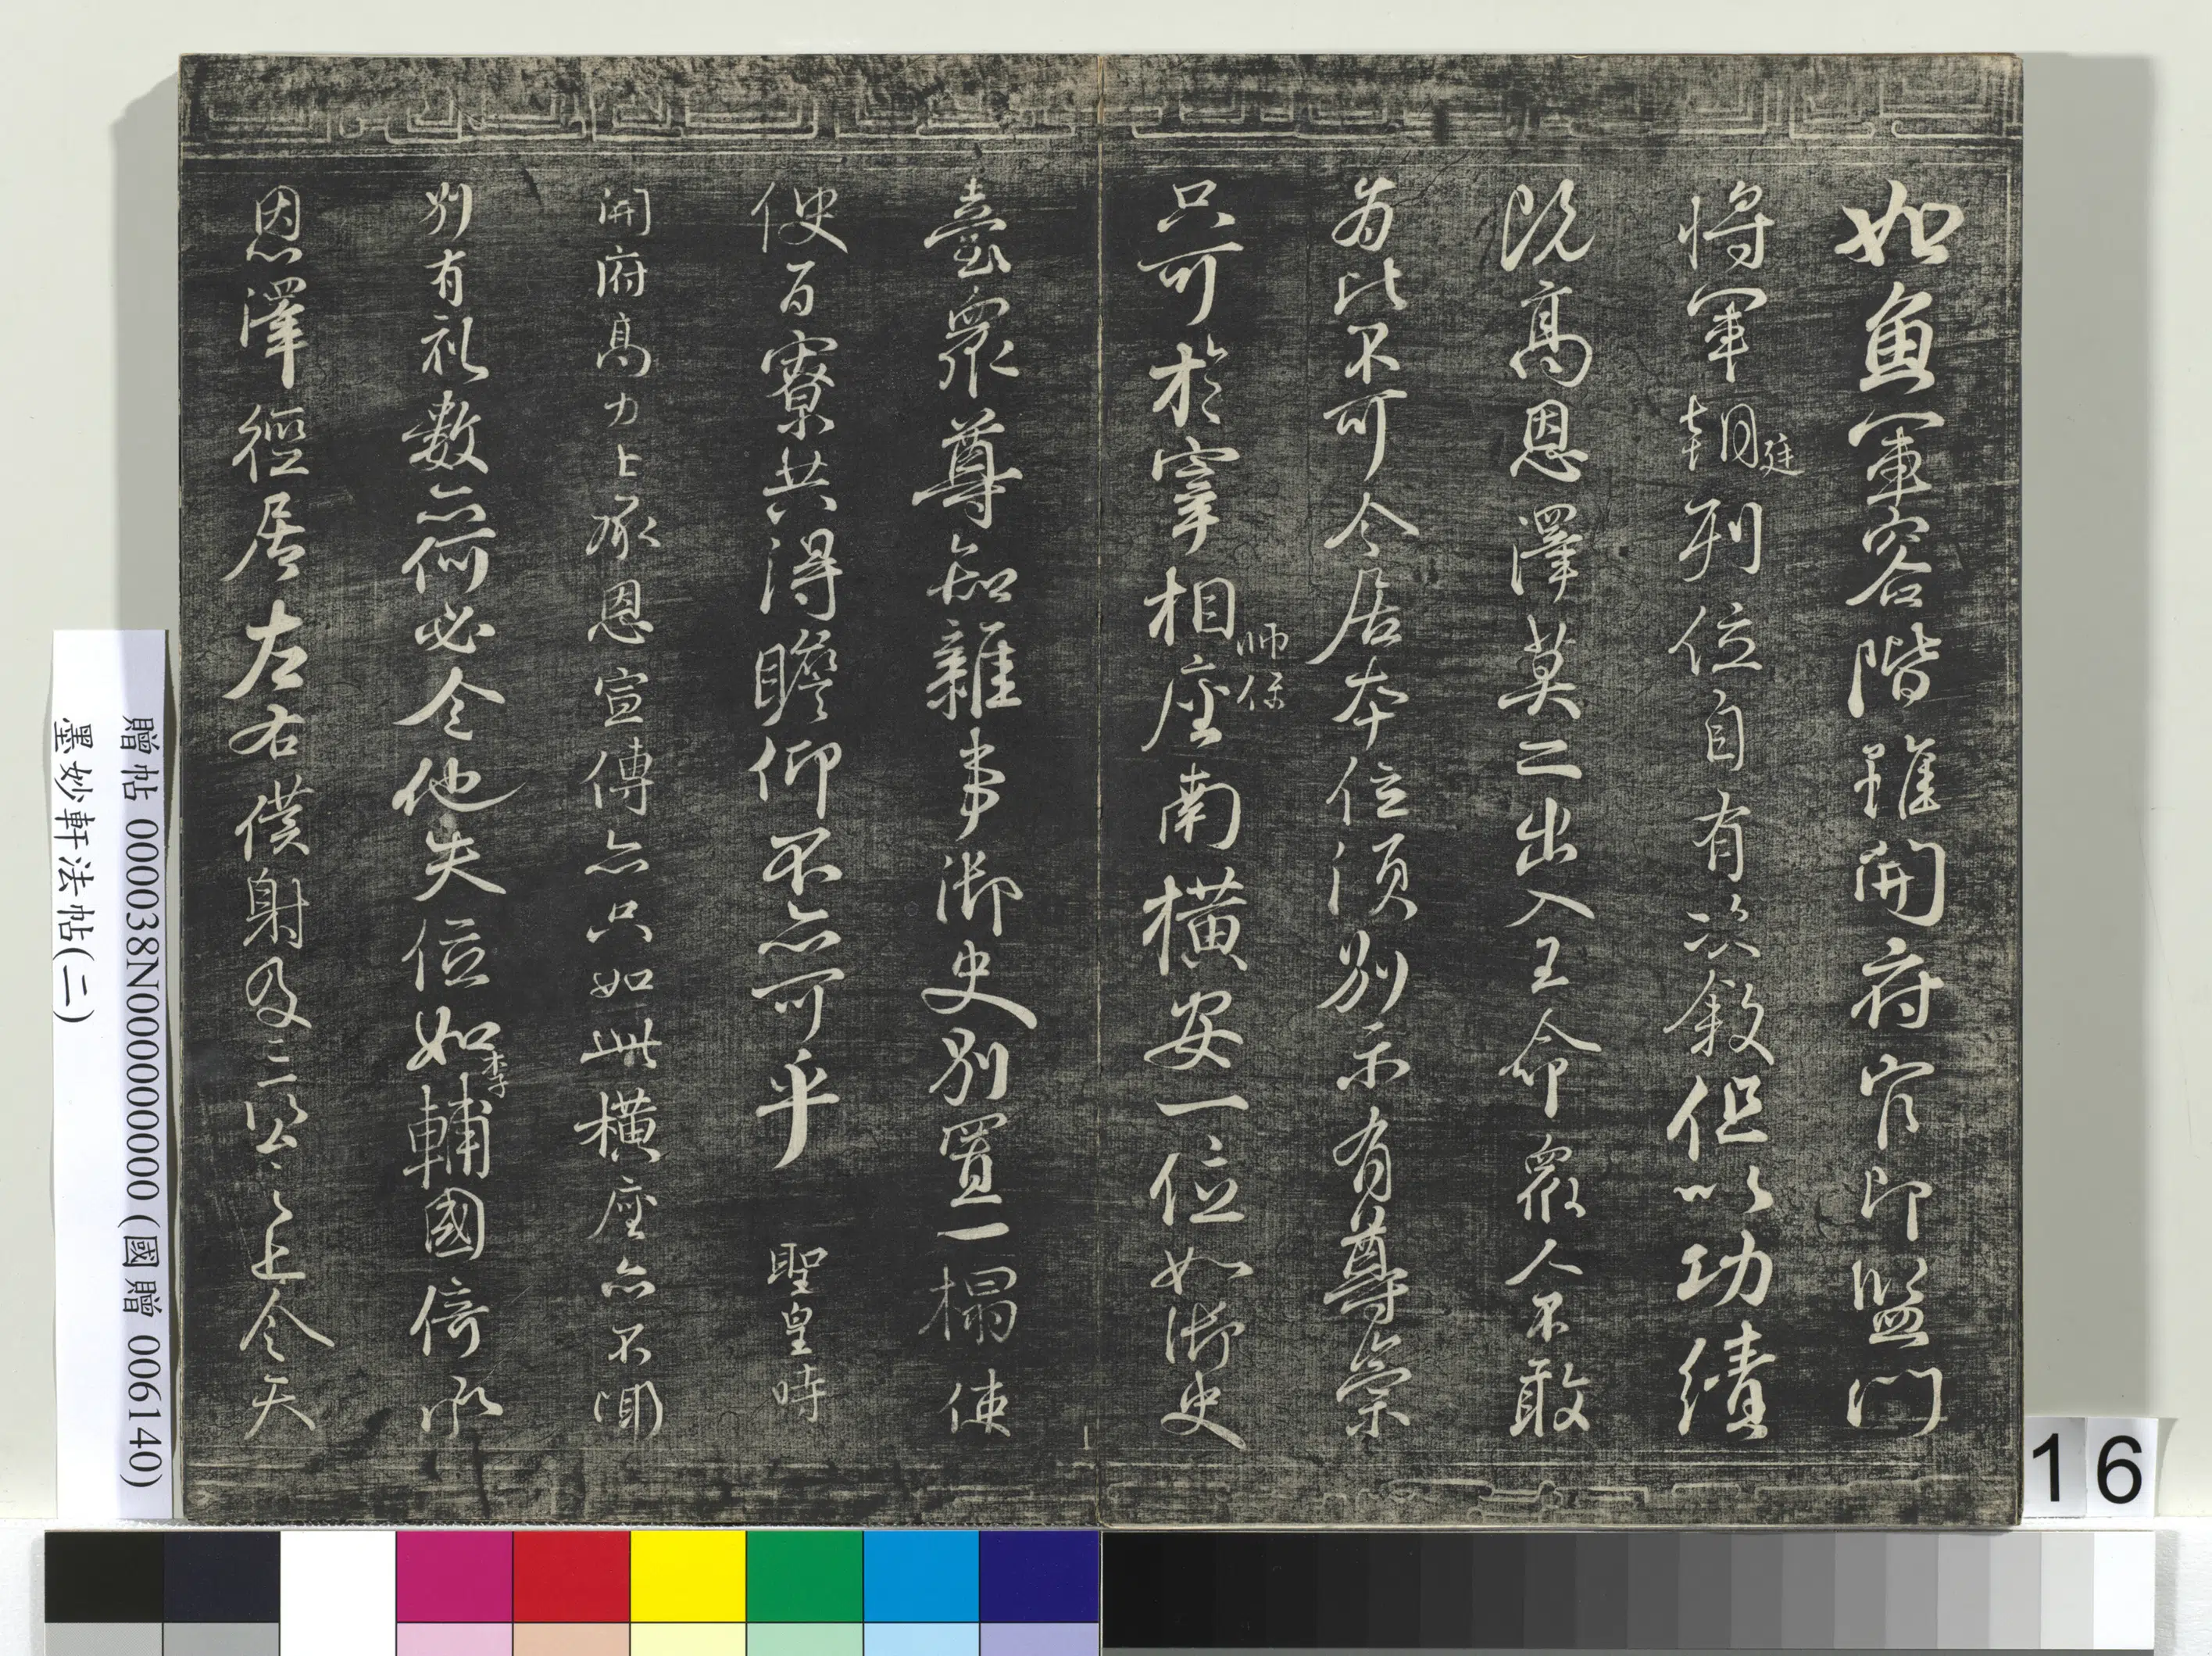 如魚軍容階雖開府官即監門
將軍朝廷列位自有次敘但以功績
既高恩澤莫二出入王命眾人不敢
為比不可令居本位須別示有尊崇
只可於宰相師保座南橫安一位如御史
臺眾尊知雜事御史別置一榻使
使百寮共得瞻仰不亦可乎 聖皇時
開府高力士承恩宣傳亦只如此橫座亦不聞
別有禮數亦何必令他失位如李輔國倚承
恩澤徑居左右僕射及三公之上令天
贈帖 000038N000000000 (國贈 006140)
墨妙軒法帖(二)
16